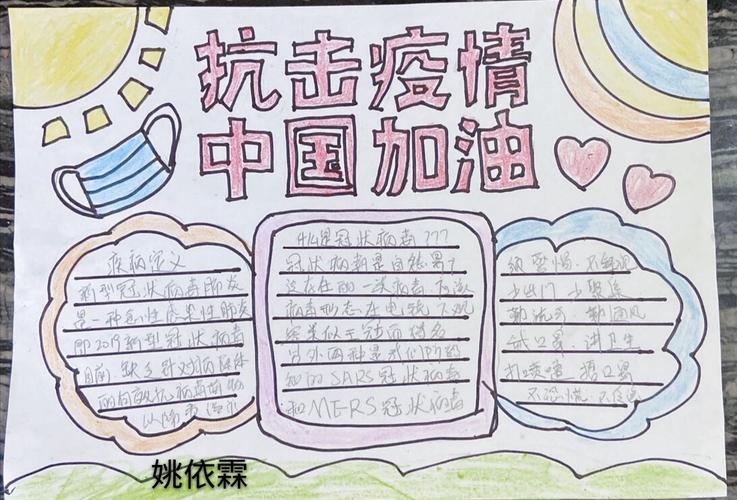 抗击疫情
中国加油
疾病定义
新型冠状病毒肺炎
是一种急性感染性肺炎
即2019新型冠状病毒
目前 缺乏针对病原体
的有效抗病毒药物
什么是冠状病毒???
冠状病毒是自然界广
泛存在的一类病毒
病毒形态在电镜下观
察类似王冠而得名
另外两种是我们所熟
知的SARS冠状病毒
和MERS冠状病毒
须警惕、不轻视
少出门 少聚集
勤洗手、勤通风
戴口罩、讲卫生
打喷嚏 捂口鼻
不恐慌、不传谣
姚依霖